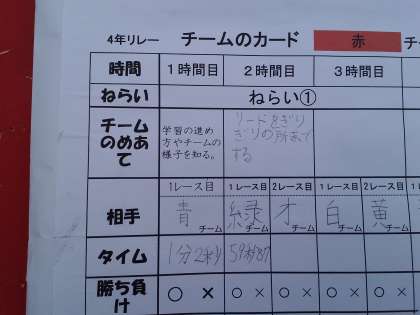 4年リレー チームのカード 赤 チー
時間 1時間目 2時間目 3時間目
ねらい ねらい①
チーム
のめあ
て
学習の進め
方やチームの
様子を知る。
リードをぎり
ぎりの所まで
する
1レース目 1レース目 2レース目 1レース目 2レース目 1レ
相手 青チーム 緑チーム オチーム 白チーム 黄チーム
タイム 1分2秒 59秒87
勝ち負
け
○ × ○ × ○ × ○ × ○ ×